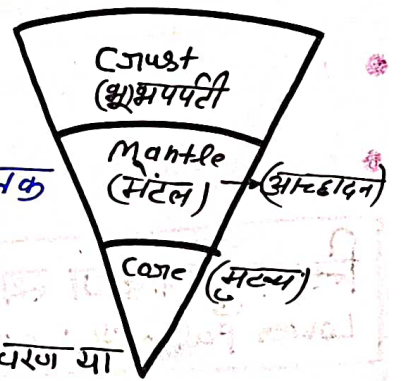 Crust
(भूभपर्पटी
Mantle
(मेंटल) → (आच्छादन)
Core (मुख्य)
या